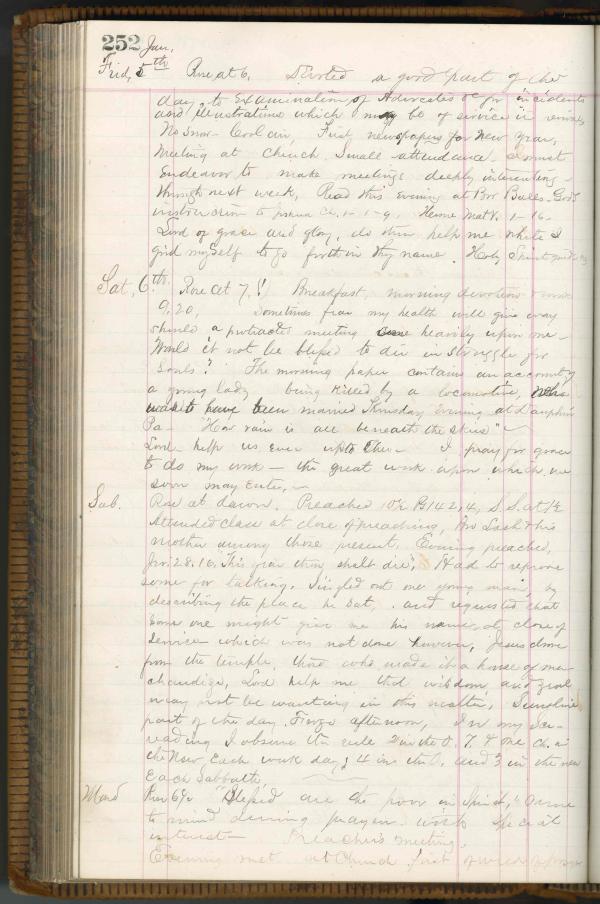 252 Jan,
Frid, 5th Rose at 6, Devoted a good part of the
day to Examination of Advocates &c for incidents
and illustrations which may be of service in revival,
No snow - Cool air, First newspapers for New Year,
Meeting at Church Small attendance, I must
Endeavor to make meetings deeply interesting -
through next week, Read this Evening at Bro Bules - God's
instruction to Joshua Ch. 1- 1-9, Home Mat V. 1-16-
Lord of grace and glory, do thou help me while I
gird myself to go forth in thy name. Holy Spirit guide
Sat, 6th, Rose at 7,! Breakfast, morning devotion
9.20, Sometimes fear my health will give way
should a protracted meeting come heavily upon me -
Would it not be blessed to die in struggle for
Souls? The morning paper contains an account of
a young lady being killed by a locomotive, who
was to have been married Thursday Evening at Dauphin
Pa - "How vain is all beneath the skies" -
Lord help us ever up to thee - I pray for grace
to do my work - the great work upon which we
soon may Enter, -
Sab. Rose at dawn. Preached 10½ Ps 142.4, S.S. at 1½
Attended class at close of preaching, Bro Lash & his
mother among those present, Evening preached,
Jer. 28.16, "This year thou shalt die", Had to reprove
some for talking. Singled out one young man by
describing the place he sat, and requested that
some one might give me his name, at close of
service which was not done however, Jesus drove
from the temple, those who made it a house of mer-
chandize, Lord help me that wisdom and zeal
may not be wanting in this matter, Sunshine
part of the day. Froze afternoon, In my
reading I observe the rule 2 in the O. T. & one Ch. in
the New, Each week day; 4 in the O. and 3 in the new
Each Sabbath
Mond Rose 6½ "Blessed are the poor in Spirit," came
to mind during prayer with special
interest - Preacher's meeting.
Evening met at Church first of week of prayer